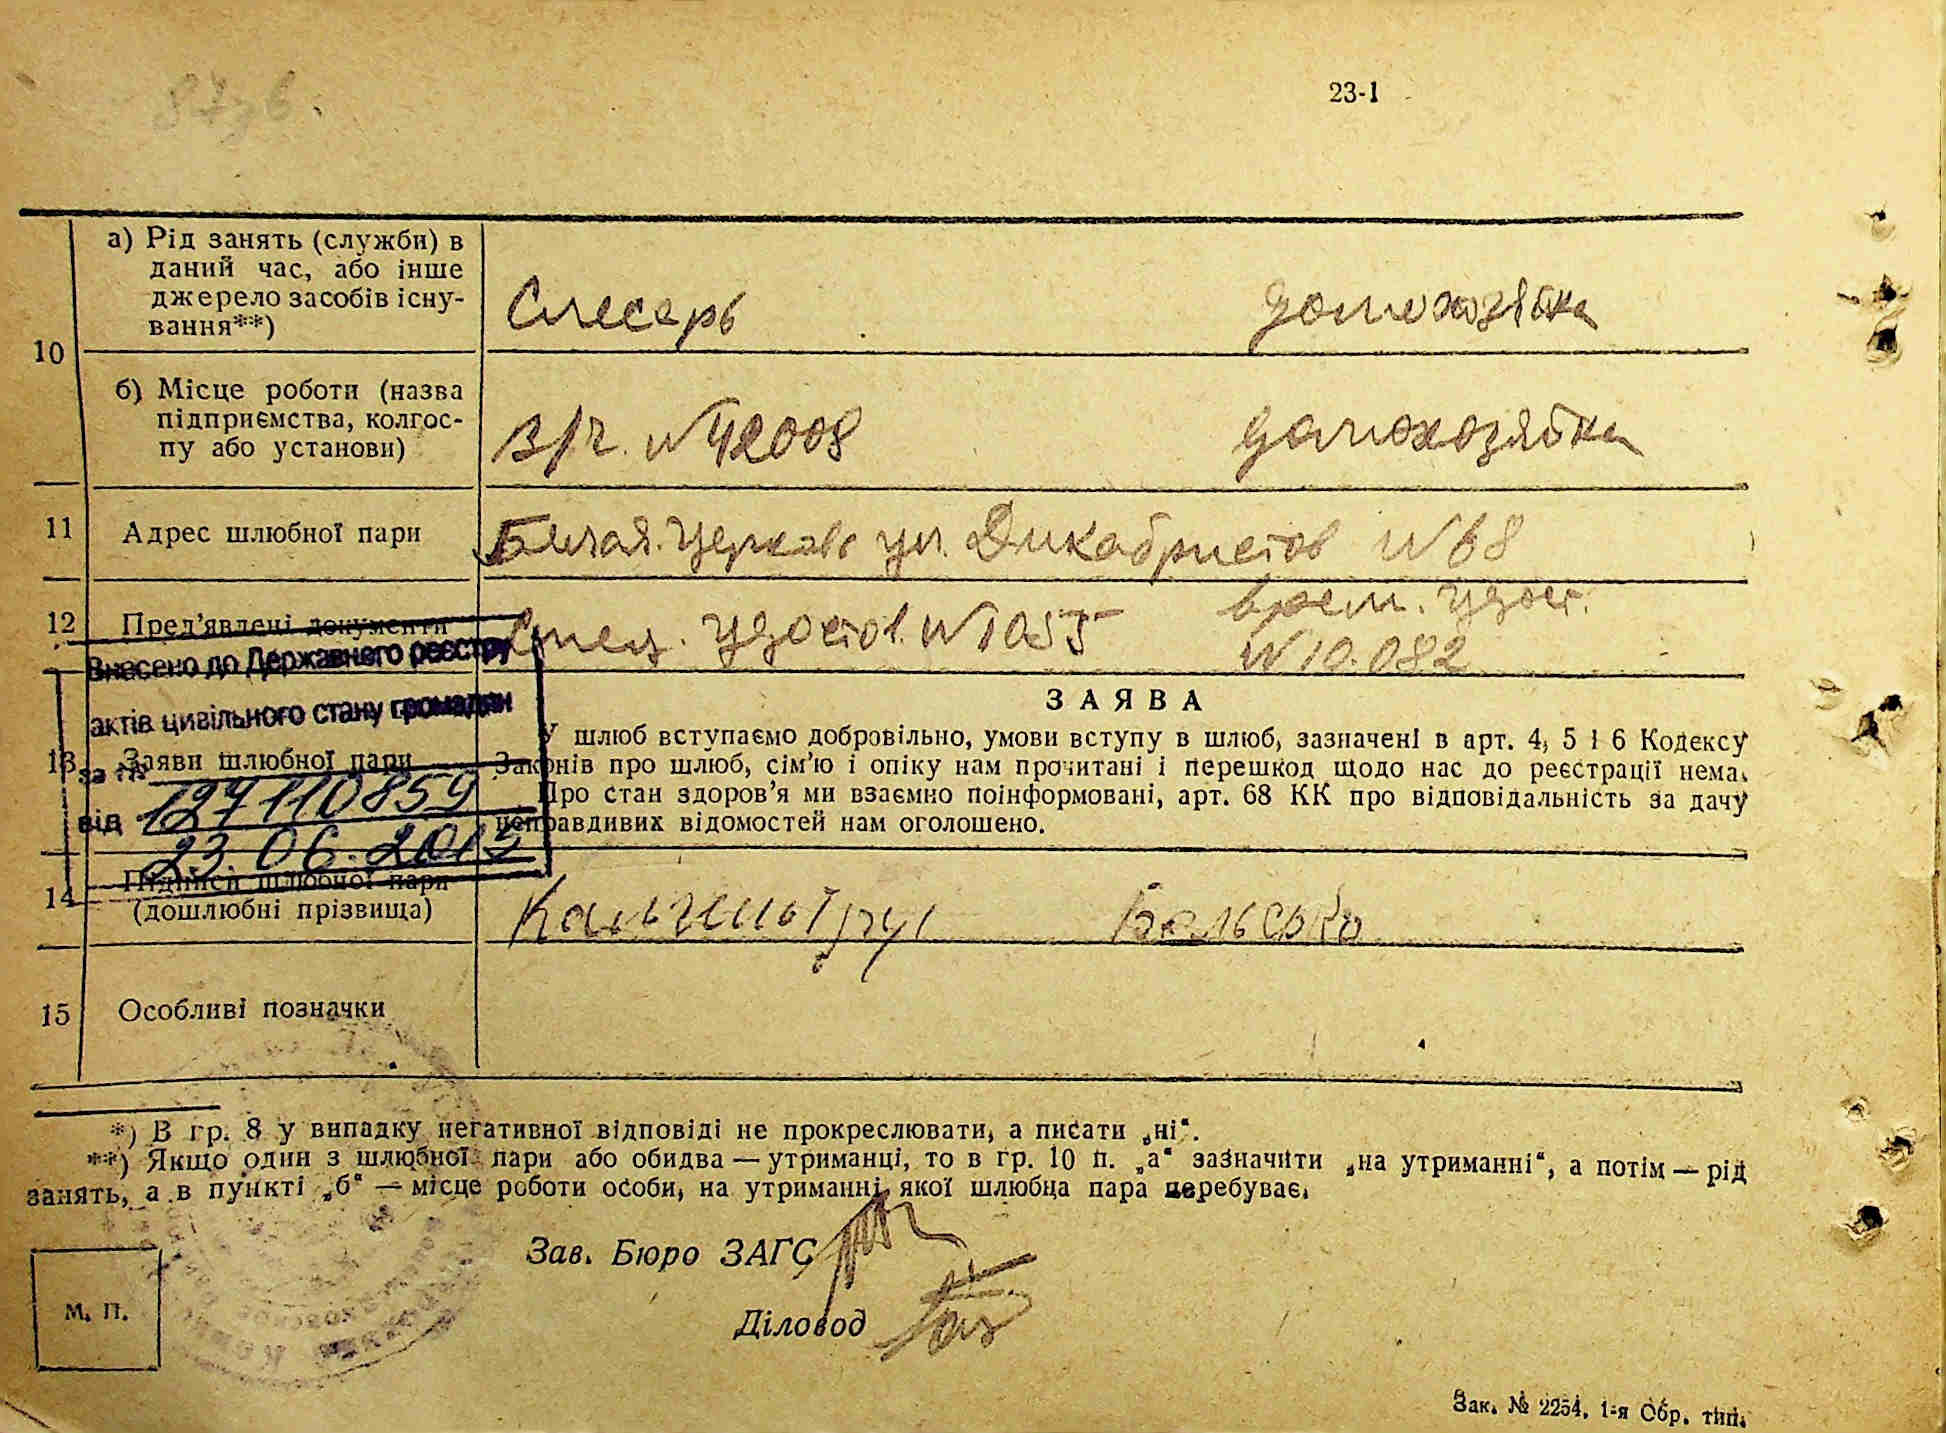 23-1
10
а) Рід занять (служби) в
даний час, або інше
джерело засобів існу-
вання**)
Слесарь
домохозяйка
б) Місце роботи (назва
підприємства, колгос-
пу або установи)
в/ч. №42008
домохозяйка
11
Адрес шлюбної пари
Белая Церковь ул. Дикабристов №68
12
Пред’явлені документи
Спец. удостов. №1055
врем. удост.
№10.082
Внесено до Державного реєстру
актів цивільного стану громадян
за №
127110859
від
23.06.2015
13
Заяви шлюбної пари
ЗАЯВА
У шлюб вступаємо добровільно, умови вступу в шлюб, зазначені в арт. 4, 5 і 6 Кодексу
Законів про шлюб, сім’ю і опіку нам прочитані і перешкод щодо нас до реєстрації нема.
Про стан здоров’я ми взаємно поінформовані, арт. 68 КК про відповідальність за дачу
неправдивих відомостей нам оголошено.
14
Підписи шлюбної пари
(дошлюбні прізвища)
15
Особливі позначки
*) В гр. 8 у випадку негативної відповіді не прокреслювати, а писати „ні“.
**) Якщо один з шлюбної пари або обидва — утриманці, то в гр. 10 п. „а“ зазначити „на утриманні“, а потім — рід
занять, а в пункті „б“ — місце роботи особи, на утриманні якої шлюбна пара перебуває.
Зав. Бюро ЗАГС
Діловод
М. П.
Зак. № 2254. 1-я Обр. тип.